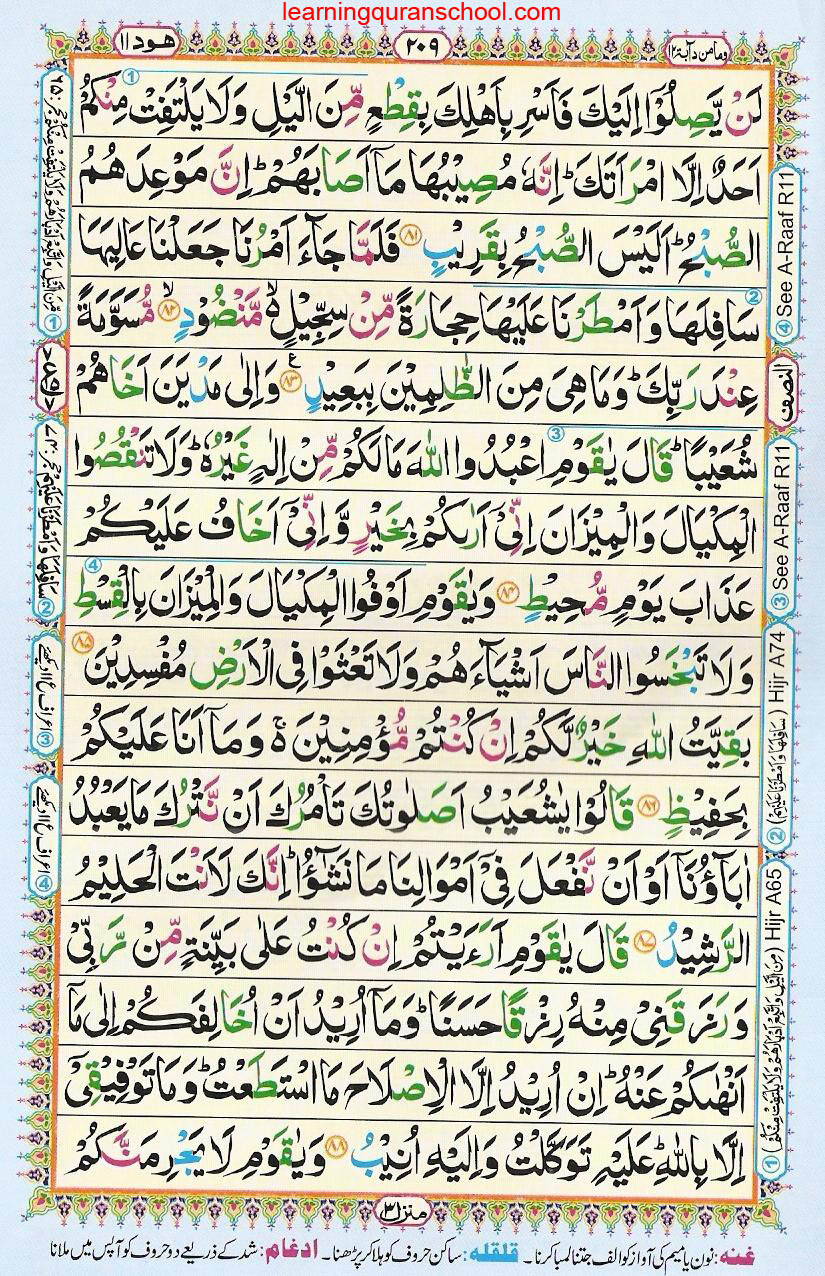 learningquranschool.com
وما من دآبة ۱۲
۲۰۹
هود ۱۱
لَنْ يَّصِلُوْۤا اِلَيْكَ فَاَسْرِ بِاَهْلِكَ بِقِطْعٍ مِّنَ الَّيْلِ وَلَا يَلْتَفِتْ مِنْكُمْ
اَحَدٌ اِلَّا امْرَاَتَكَ ؕ اِنَّهٗ مُصِيْبُهَا مَاۤ اَصَابَهُمْ ؕ اِنَّ مَوْعِدَهُمُ
الصُّبْحُ ؕ اَلَيْسَ الصُّبْحُ بِقَرِيْبٍ ۸۱ فَلَمَّا جَآءَ اَمْرُنَا جَعَلْنَا عَالِيَهَا
سَافِلَهَا وَاَمْطَرْنَا عَلَيْهَا حِجَارَةً مِّنْ سِجِّيْلٍ ۙ مَّنْضُوْدٍ ۙ ۸۲ مُّسَوَّمَةً
عِنْدَ رَبِّكَ ؕ وَمَا هِىَ مِنَ الظّٰلِمِيْنَ بِبَعِيْدٍ ۸۳ ع وَاِلٰى مَدْيَنَ اَخَاهُمْ
شُعَيْبًا ؕ قَالَ يٰقَوْمِ اعْبُدُوا اللّٰهَ مَا لَكُمْ مِّنْ اِلٰهٍ غَيْرُهٗ ؕ وَلَا تَنْقُصُوا
الْمِكْيَالَ وَالْمِيْزَانَ اِنِّىْۤ اَرٰىكُمْ بِخَيْرٍ وَّاِنِّىْۤ اَخَافُ عَلَيْكُمْ
عَذَابَ يَوْمٍ مُّحِيْطٍ ۸۴ وَيٰقَوْمِ اَوْفُوا الْمِكْيَالَ وَالْمِيْزَانَ بِالْقِسْطِ
وَلَا تَبْخَسُوا النَّاسَ اَشْيَآءَهُمْ وَلَا تَعْثَوْا فِى الْاَرْضِ مُفْسِدِيْنَ ۸۵
بَقِيَّتُ اللّٰهِ خَيْرٌ لَّكُمْ اِنْ كُنْتُمْ مُّؤْمِنِيْنَ ۚ۬ وَمَاۤ اَنَا عَلَيْكُمْ
بِحَفِيْظٍ ۸۶ قَالُوْا يٰشُعَيْبُ اَصَلٰوتُكَ تَاْمُرُكَ اَنْ نَّتْرُكَ مَا يَعْبُدُ
اٰبَآؤُنَاۤ اَوْ اَنْ نَّفْعَلَ فِىْۤ اَمْوَالِنَا مَا نَشٰٓؤُا ؕ اِنَّكَ لَاَنْتَ الْحَلِيْمُ
الرَّشِيْدُ ۸۷ قَالَ يٰقَوْمِ اَرَءَيْتُمْ اِنْ كُنْتُ عَلٰى بَيِّنَةٍ مِّنْ رَّبِّىْ
وَرَزَقَنِىْ مِنْهُ رِزْقًا حَسَنًا ؕ وَمَاۤ اُرِيْدُ اَنْ اُخَالِفَكُمْ اِلٰى مَاۤ
اَنْهٰىكُمْ عَنْهُ ؕ اِنْ اُرِيْدُ اِلَّا الْاِصْلَاحَ مَا اسْتَطَعْتُ ؕ وَمَا تَوْفِيْقِىْۤ
اِلَّا بِاللّٰهِ ؕ عَلَيْهِ تَوَكَّلْتُ وَاِلَيْهِ اُنِيْبُ ۸۸ وَيٰقَوْمِ لَا يَجْرِمَنَّكُمْ
④ See A-Raaf R11
النصف
③ See A-Raaf R11
② Hijr A74
① Hijr A65
③ اعراف ع ۱۱ دیکھئے
④ اعراف ع ۱۱ دیکھئے
منزل ۳
غنه: نون یا میم کی آواز کو الف جتنا لمبا کرنا۔ قلقله: ساکن حروف کو ہلا کر پڑھنا۔ ادغام: شد کے ذریعے دو حروف کو آپس میں ملانا